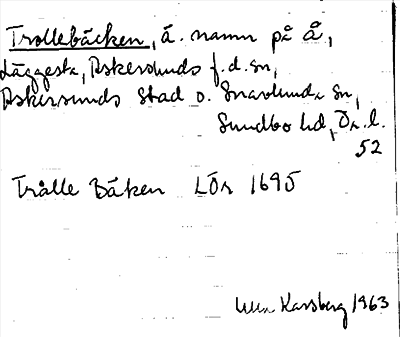 Trollebäcken, ä. namn på å,
Läggesta, Askersunds f.d. sn,
Askersunds stad o. Snavlunda sn,
Sundbo hd, Ör. l.
52
Trålle Bäken LÖr 1695
Karsberg 1963